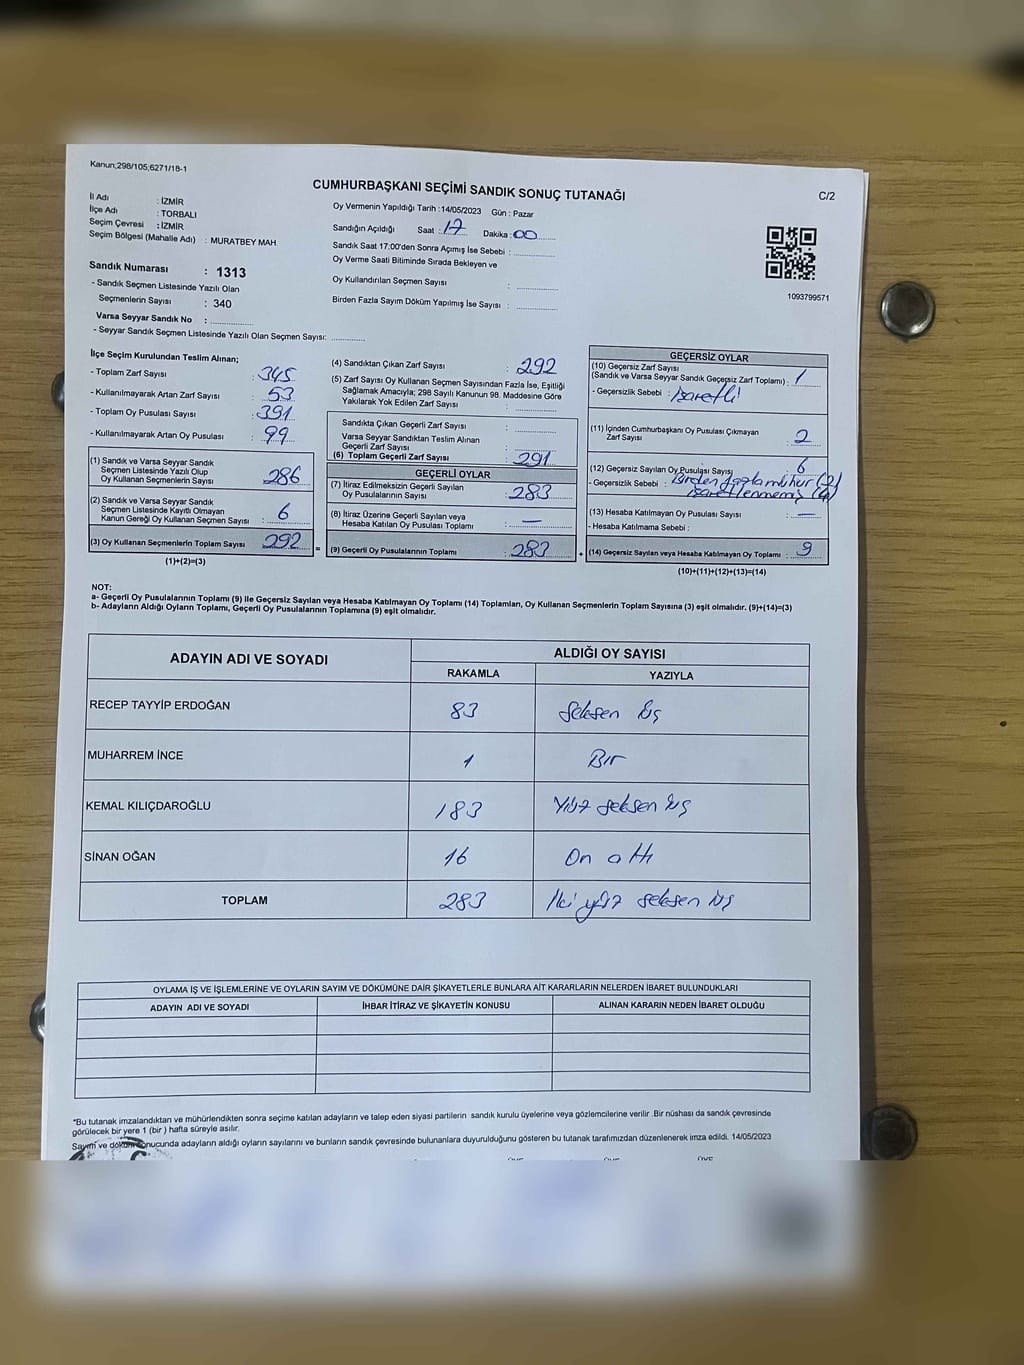 Kanun;298/105;6271/18-1
CUMHURBAŞKANI SEÇİMİ SANDIK SONUÇ TUTANAĞI
C/2
İl Adı : İZMİR
İlçe Adı : TORBALI
Seçim Çevresi : İZMİR
Seçim Bölgesi (Mahalle Adı) : MURATBEY MAH.
Sandık Numarası : 1313
- Sandık Seçmen Listesinde Yazılı Olan
Seçmenlerin Sayısı : 340
Varsa Seyyar Sandık No :
- Seyyar Sandık Seçmen Listesinde Yazılı Olan Seçmen Sayısı:
Oy Vermenin Yapıldığı Tarih :14/05/2023 Gün : Pazar
Sandığın Açıldığı Saat : 17 Dakika : 00
Sandık Saat 17:00'den Sonra Açımış İse Sebebi :
Oy Verme Saati Bitiminde Sırada Bekleyen ve
Oy Kullandırılan Seçmen Sayısı :
Birden Fazla Sayım Döküm Yapılmış İse Sayısı :
1093799571
İlçe Seçim Kurulundan Teslim Alınan;
- Toplam Zarf Sayısı : 345
- Kullanılmayarak Artan Zarf Sayısı : 53
- Toplam Oy Pusulası Sayısı : 391
- Kullanılmayarak Artan Oy Pusulası : 99
(1) Sandık ve Varsa Seyyar Sandık
Seçmen Listesinde Yazılı Olup
Oy Kullanan Seçmenlerin Sayısı : 286
(2) Sandık ve Varsa Seyyar Sandık
Seçmen Listesinde Kayıtlı Olmayan
Kanun Gereği Oy Kullanan Seçmen Sayısı : 6
(3) Oy Kullanan Seçmenlerin Toplam Sayısı : 292
(1)+(2)=(3)
(4) Sandıktan Çıkan Zarf Sayısı : 292
(5) Zarf Sayısı Oy Kullanan Seçmen Sayısından Fazla İse, Eşitliği
Sağlamak Amacıyla; 298 Sayılı Kanunun 98. Maddesine Göre
Yakılarak Yok Edilen Zarf Sayısı :
Sandıkta Çıkan Geçerli Zarf Sayısı :
Varsa Seyyar Sandıktan Teslim Alınan
Geçerli Zarf Sayısı :
(6) Toplam Geçerli Zarf Sayısı : 291
GEÇERLİ OYLAR
(7) İtiraz Edilmeksizin Geçerli Sayılan
Oy Pusulalarının Sayısı : 283
(8) İtiraz Üzerine Geçerli Sayılan veya
Hesaba Katılan Oy Pusulası Toplamı : —
= (9) Geçerli Oy Pusulalarının Toplamı : 283
GEÇERSİZ OYLAR
(10) Geçersiz Zarf Sayısı
(Sandık ve Varsa Seyyar Sandık Geçersiz Zarf Toplamı) : 1
- Geçersizlik Sebebi : İşaretli
(11) İçinden Cumhurbaşkanı Oy Pusulası Çıkmayan
Zarf Sayısı : 2
(12) Geçersiz Sayılan Oy Pusulası Sayısı : 6
- Geçersizlik Sebebi : Birden fazla mühür (2)
işaretlenmemiş (4)
(13) Hesaba Katılmayan Oy Pusulası Sayısı : —
- Hesaba Katılmama Sebebi :
+ (14) Geçersiz Sayılan veya Hesaba Katılmayan Oy Toplamı : 9
(10)+(11)+(12)+(13)=(14)
NOT:
a- Geçerli Oy Pusulalarının Toplamı (9) ile Geçersiz Sayılan veya Hesaba Katılmayan Oy Toplamı (14) Toplamları, Oy Kullanan Seçmenlerin Toplam Sayısına (3) eşit olmalıdır. (9)+(14)=(3)
b- Adayların Aldığı Oyların Toplamı, Geçerli Oy Pusulalarının Toplamına (9) eşit olmalıdır.
ADAYIN ADI VE SOYADI
ALDIĞI OY SAYISI
RAKAMLA YAZIYLA
RECEP TAYYİP ERDOĞAN 83 Seksen üç
MUHARREM İNCE 1 Bir
KEMAL KILIÇDAROĞLU 183 Yüz seksen üç
SİNAN OĞAN 16 On altı
TOPLAM 283 İki yüz seksen üç
OYLAMA İŞ VE İŞLEMLERİNE VE OYLARIN SAYIM VE DÖKÜMÜNE DAİR ŞİKAYETLERLE BUNLARA AİT KARARLARIN NELERDEN İBARET BULUNDUKLARI
ADAYIN ADI VE SOYADI İHBAR İTİRAZ VE ŞİKAYETİN KONUSU ALINAN KARARIN NEDEN İBARET OLDUĞU
*Bu tutanak imzalandıktan ve mühürlendikten sonra seçime katılan adayların ve talep eden siyasi partilerin sandık kurulu üyelerine veya gözlemcilerine verilir .Bir nüshası da sandık çevresinde
görülecek bir yere 1 (bir ) hafta süreyle asılır.
Sayım ve döküm sonucunda adayların aldığı oyların sayılarını ve bunların sandık çevresinde bulunanlara duyurulduğunu gösteren bu tutanak tarafımızdan düzenlenerek imza edildi. 14/05/2023